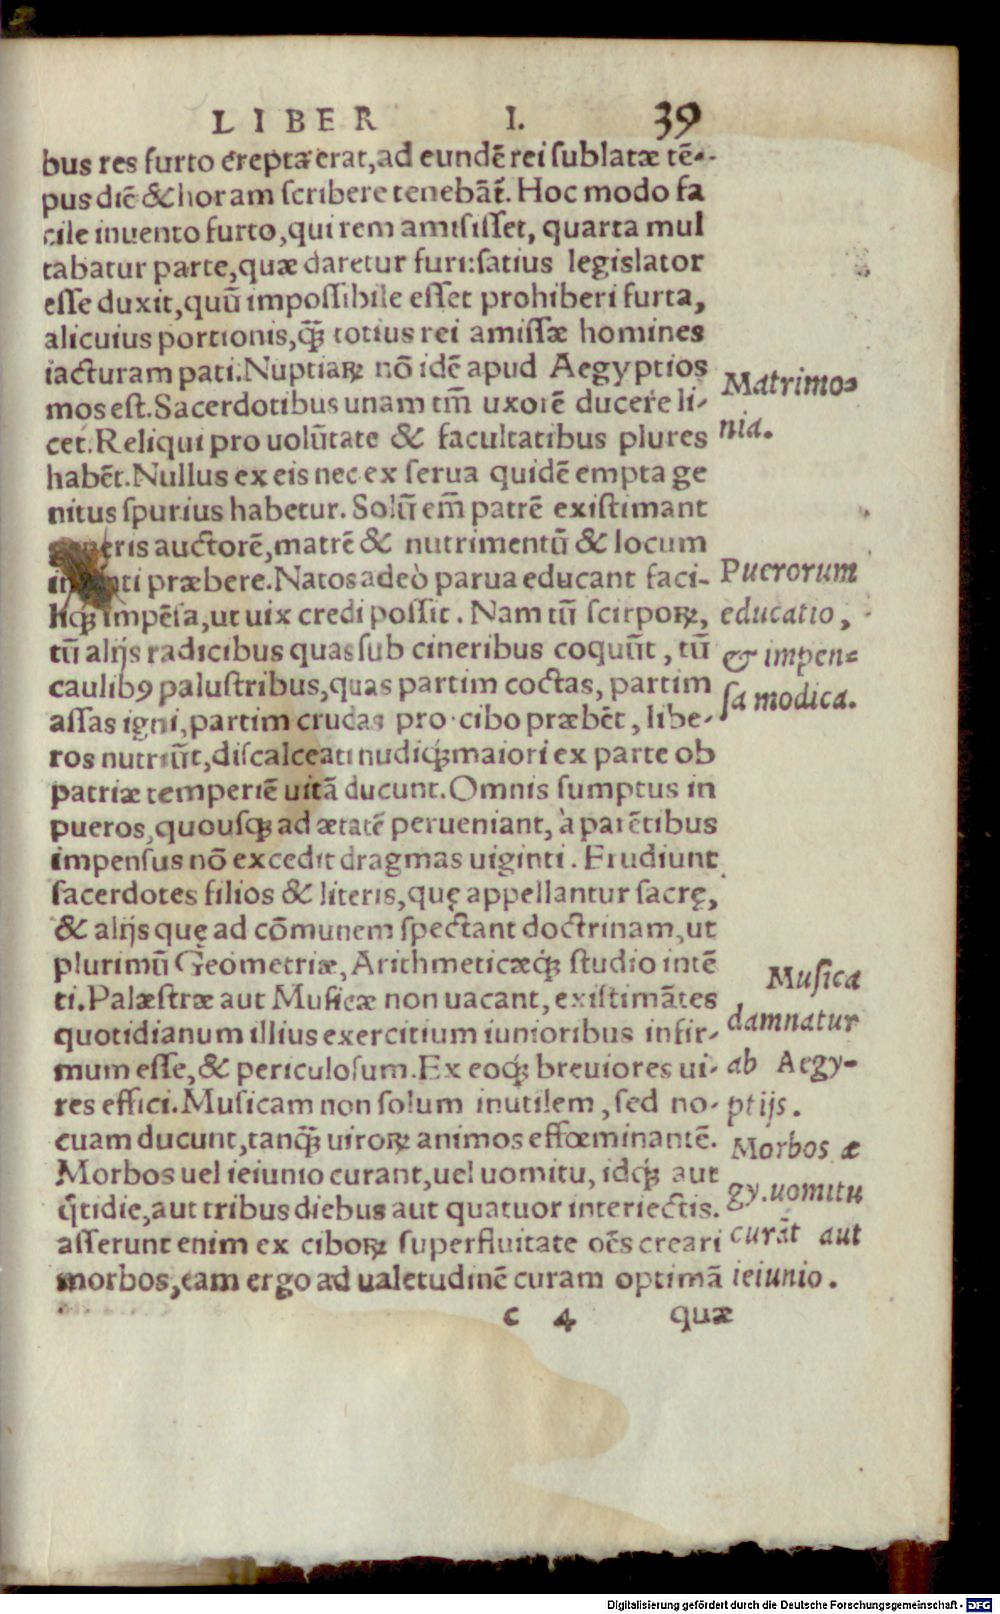 LIBER I. 39
bus res furto erepta erat, ad eundē rei sublatæ tē-
pus diē & horam scribere tenebāt̃. Hoc modo fa
cile inuento furto, qui rem amisisset, quarta mul
tabatur parte, quæ daretur furi: satius legislator
esse duxit, quū impossibile esset prohiberi furta,
alicuius portionis, q̃ꝫ totius rei amissæ homines
iacturam pati. Nuptiaꝝ nō idē apud Aegyptios
mos est. Sacerdotibus unam tm̄ uxorē ducere li-
cet. Reliqui pro uolūtate & facultatibus plures
habēt. Nullus ex eis nec ex serua quidē empta ge
nitus spurius habetur. Solū em̄ patrē existimant
generis auctorē, matrē & nutrimentū & locum
infanti præbere. Natos adeò parua educant faci-
liq́ꝫ impēsa, ut uix credi possit. Nam tū scirpoꝝ,
tū alijs radicibus quas sub cineribus coquūt, tū
caulibꝰ palustribus, quas partim coctas, partim
assas igni, partim crudas pro cibo præbēt, libe-
ros nutriūt, discalceati nudiq́ꝫ maiori ex parte ob
patriæ temperiē uitā ducunt. Omnis sumptus in
pueros, quousq́ꝫ ad ætatē perueniant, à parētibus
impensus nō excedit dragmas uiginti. Erudiunt
sacerdotes filios & literis, quę appellantur sacrę,
& alijs quę ad cōmunem spectant doctrinam, ut
plurimū Geometriæ, Arithmeticæq́ꝫ studio intē
ti. Palæstræ aut Musicæ non uacant, existimātes
quotidianum illius exercitium iunioribus infir-
mum esse, & periculosum. Ex eoq́ꝫ breuiores ui-
res effici. Musicam non solum inutilem, sed no-
cuam ducunt, tanq̃ꝫ uiroꝝ animos effœminantē.
Morbos uel ieiunio curant, uel uomitu, idq́ꝫ aut
q̄tidie, aut tribus diebus aut quatuor interiectis.
asserunt enim ex ciboꝝ superfluitate oēs creari
morbos, eam ergo ad ualetudinē curam optimā
c 4 quæ
Matrimo-
nia.
Puerorum
educatio,
& impen-
sa modica.
Musica
damnatur
ab Aegy-
ptijs.
Morbos æ
gy. uomitu
curāt aut
ieiunio.
Digitalisierung gefördert durch die Deutsche Forschungsgemeinschaft - DFG